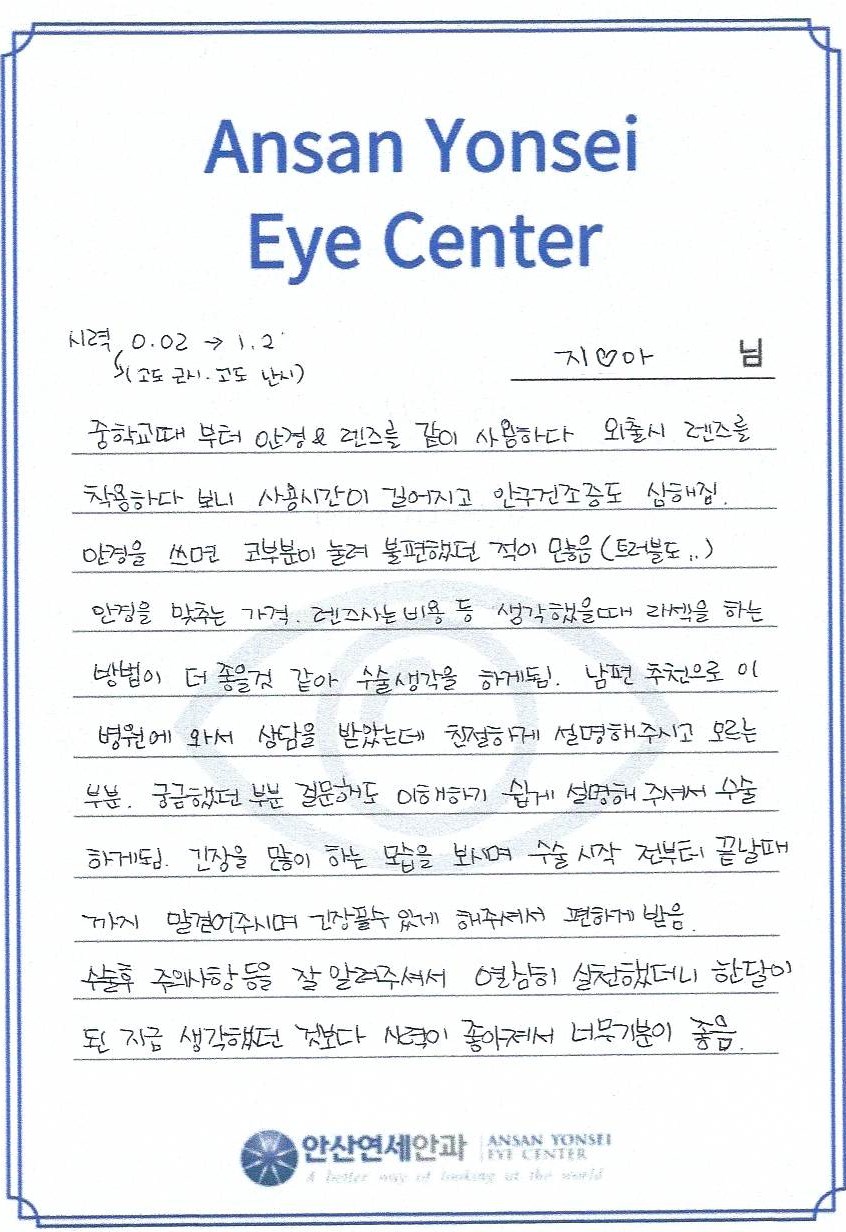 Ansan Yonsei
Eye Center
시력 0.02 → 1.2
(고도 근시. 고도 난시)
지♡아 님
중학교때 부터 안경&렌즈를 같이 사용하다 외출시 렌즈를
착용하다 보니 사용시간이 길어지고 안구건조증도 심해짐.
안경을 쓰면 코부분이 눌려 불편했던 적이 많음 (트러블도..)
안경을 맞추는 가격. 렌즈사는 비용 등 생각했을때 라섹을 하는
방법이 더 좋을것 같아 수술생각을 하게됨. 남편 추천으로 이
병원에 와서 상담을 받았는데 친절하게 설명해주시고 모르는
부분. 궁금했던 부분 질문해도 이해하기 쉽게 설명해 주셔서 수술
하게됨. 긴장을 많이 하는 모습을 보시며 수술 시작 전부터 끝날때
까지 말걸어주시며 긴장풀수 있게 해주셔서 편하게 받음.
수술후 주의사항 등을 잘 알려주셔서 열심히 실천했더니 한달이
된 지금 생각했던 것보다 시력이 좋아져서 너무 기분이 좋음.
안산연세안과 ANSAN YONSEI
EYE CENTER
A better way of looking at the world